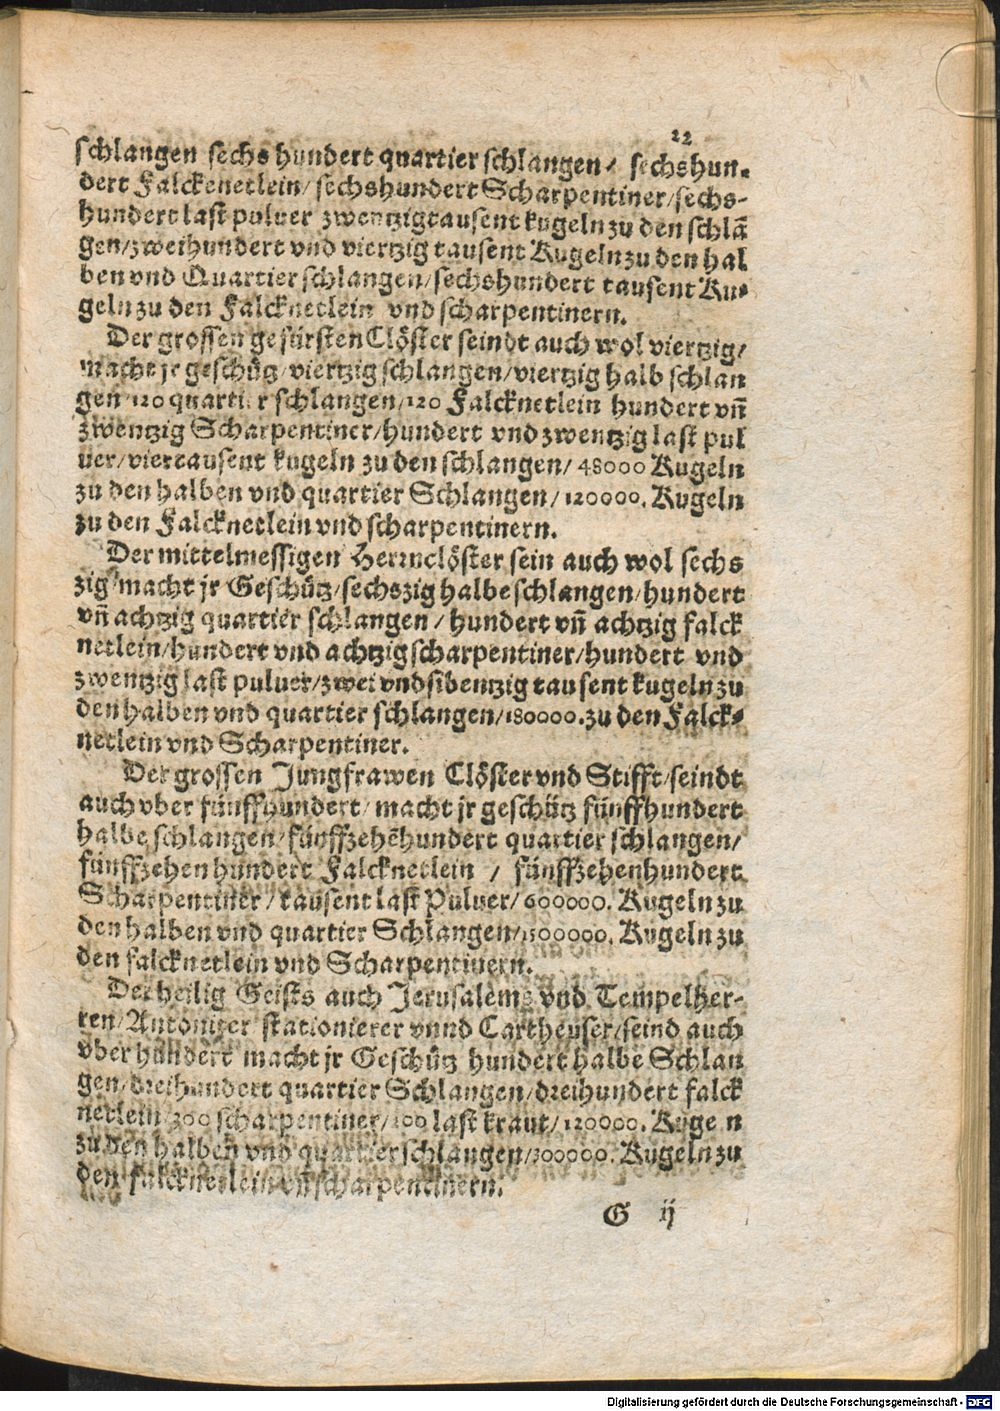 22
schlangen sechs hundert quartier schlangen / sechshun-
dert Falckenetlein / sechshundert Scharpentiner / sechs-
hundert last puluer zwentzigtausent kugeln zu den schlã
gen / zweihundert vnd viertzig tausent Kugeln zu den hal
ben vnd Quartier schlangen / sechshundert tausent Ku-
geln zu den Falcknetlein vnd scharpentinern.
Der grossen gefürsten Clöster seindt auch wol viertzig /
macht jr geschütz / viertzig schlangen / viertzig halb schlan
gen 120 quartier schlangen / 120 Falcknetlein hundert vñ
zwentzig Scharpentiner / hundert vnd zwentzig last pul
uer / viertausent kugeln zu den schlangen / 48000 Kugeln
zu den halben vnd quartier Schlangen / 120000. Kugeln
zu den Falcknetlein vnd scharpentinern.
Der mittelmessigen Herrnclöster sein auch wol sechs
zig / macht jr Geschütz / sechszig halbe schlangen / hundert
vñ achtzig quartier schlangen / hundert vñ achtzig falck
netlein / hundert vnd achtzig scharpentiner / hundert vnd
zwentzig last puluer / zwei vnd sibentzig tausent kugeln zu
den halben vnd quartier schlangen / 180000. zu den Falck-
netlein vnd Scharpentiner.
Der grossen Jungfrawen Clöster vnd Stifft / seindt
auch vber fünffhundert / macht jr geschütz fünffhundert
halbe schlangen / fünffzehẽhundert quartier schlangen /
fünffzehen hundert Falcknetlein / fünffzehenhundert
Scharpentiner / tausent last Puluer / 600000. Kugeln zu
den halben vnd quartier Schlangen / 1500000. Kugeln zu
den falcknetlein vnd Scharpentinern.
Der heilig Geists auch Jerusalems vnd Tempelher-
ren / Antoniter stationierer vnnd Cartheuser / seind auch
vber hundert macht jr Geschütz hundert halbe Schlan
gen / dreihundert quartier Schlangen / dreihundert falck
netlein / 300 scharpentiner / 100 last kraut / 120000. Kuge n
zu den halben vnd quartier schlangen / 300000. Kugeln zu
den falcknetlein vñ scharpentinern.
G ij
Digitalisierung gefördert durch die Deutsche Forschungsgemeinschaft - DFG